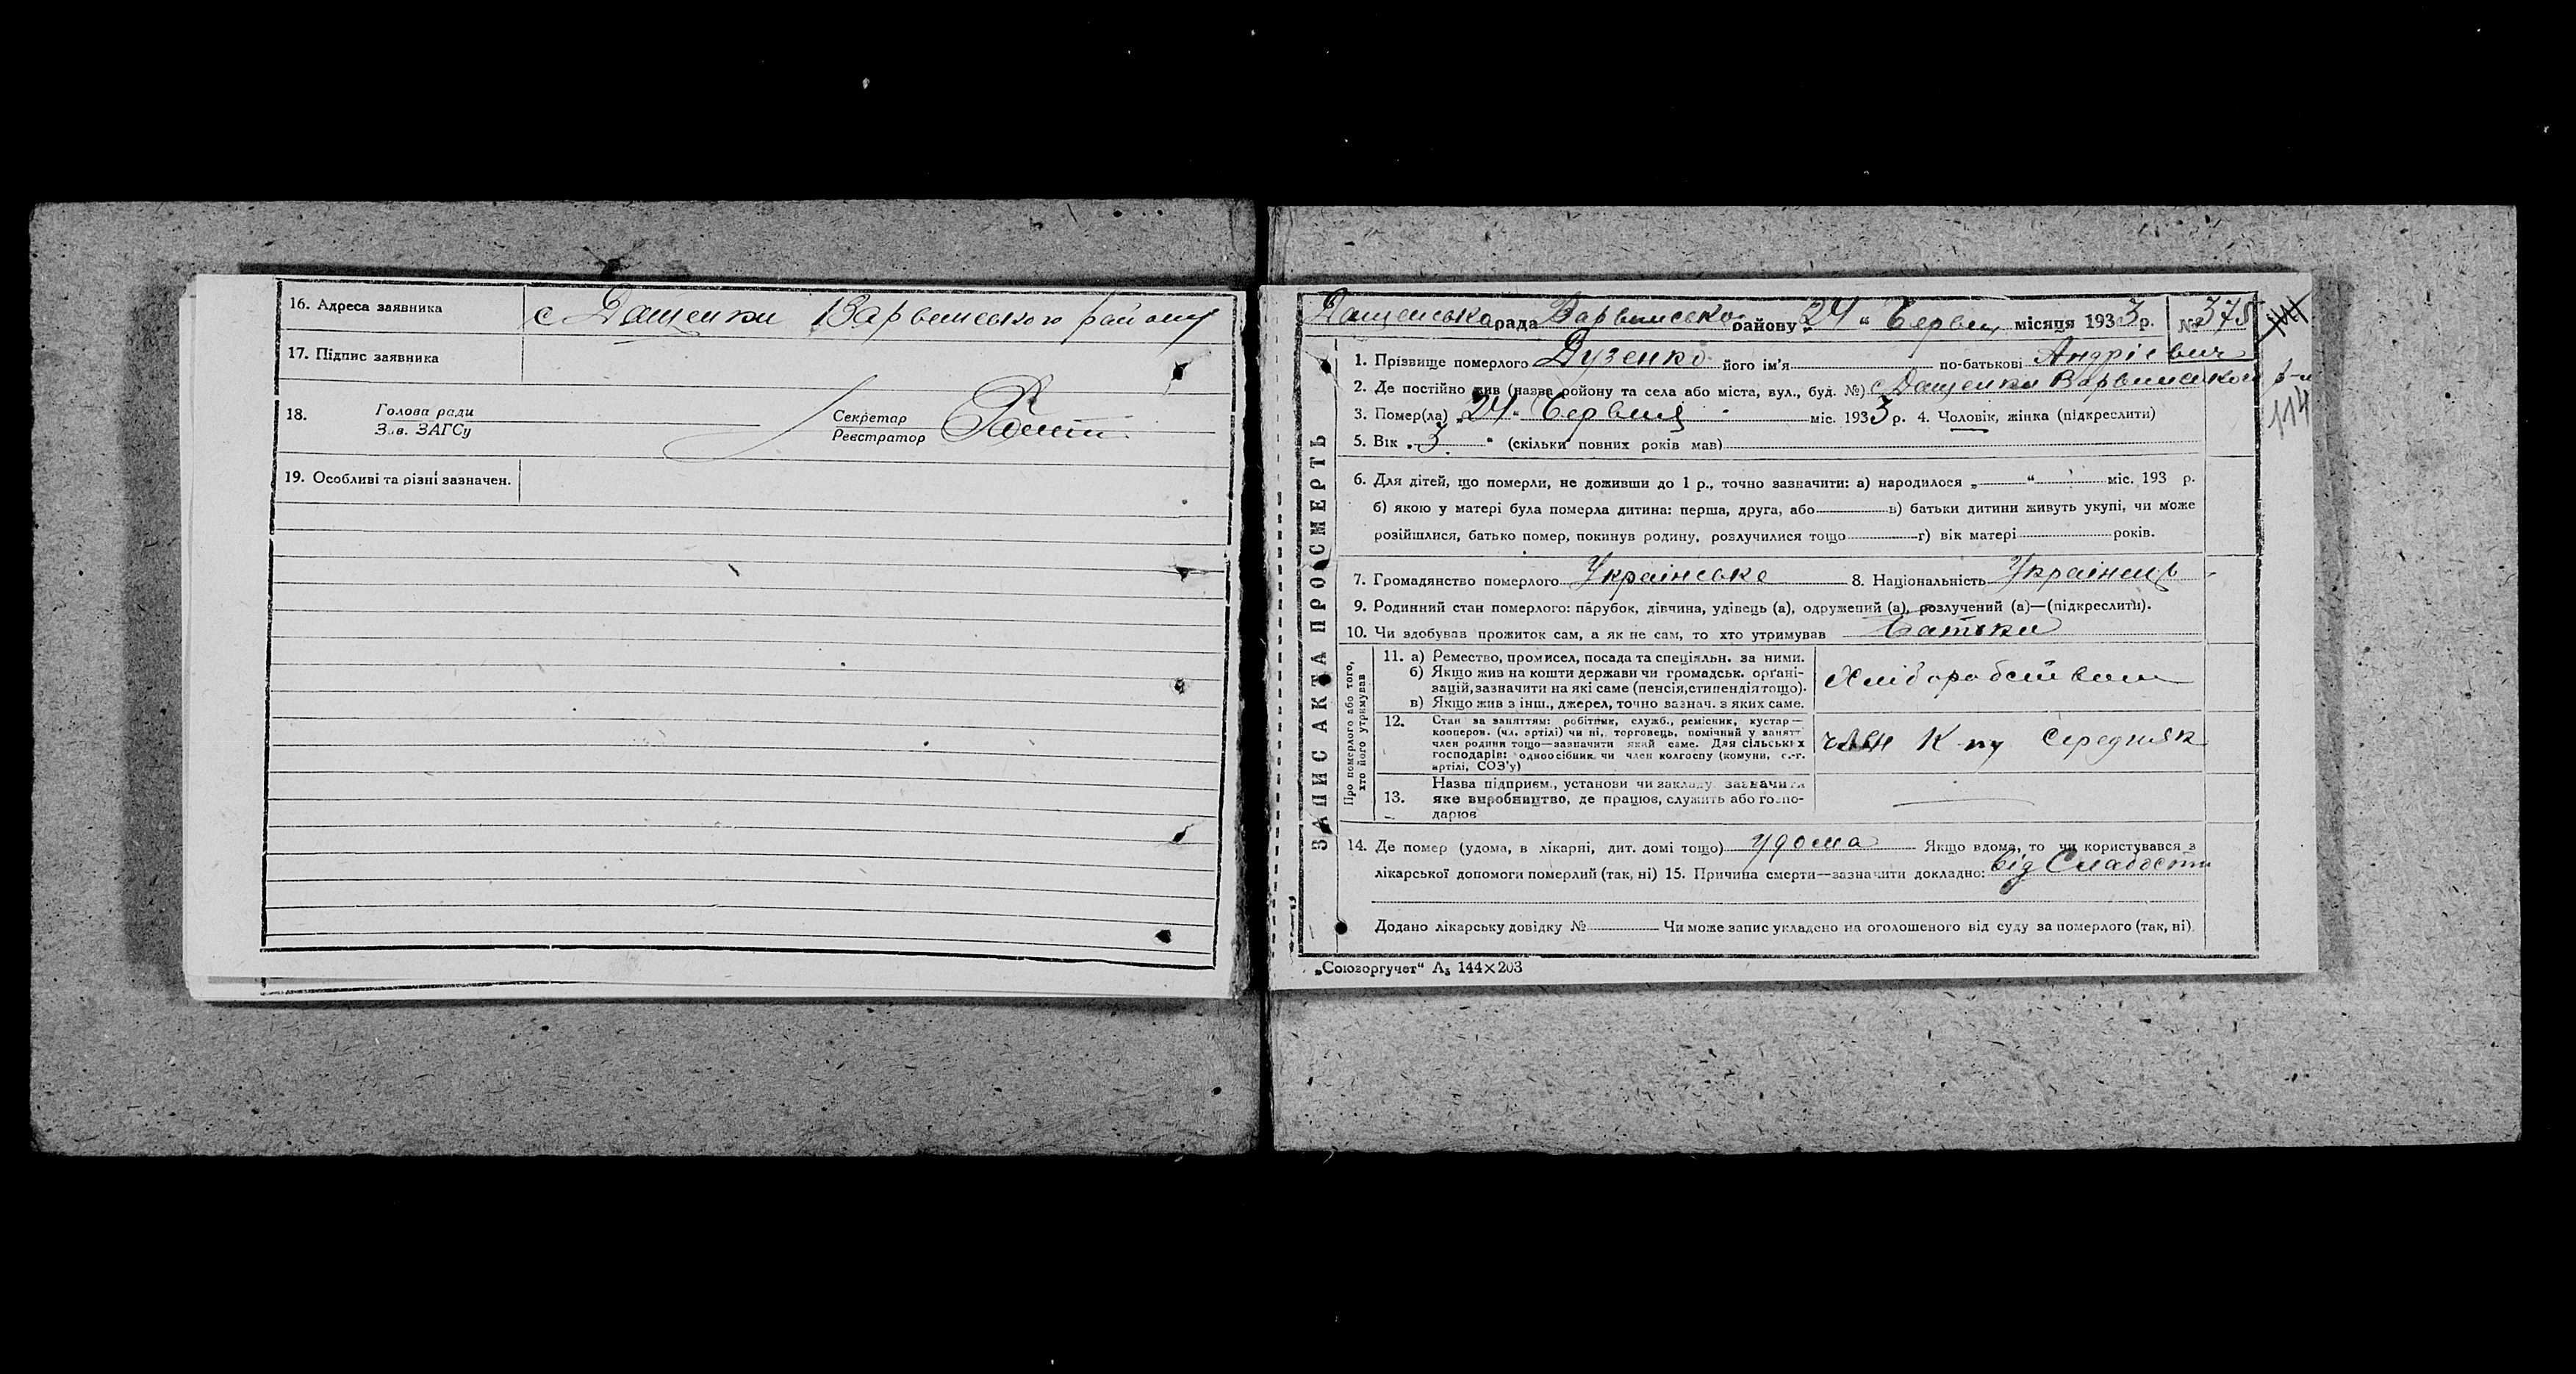 16. Адреса заявника с Дащенки Варвинського району
17. Підпис заявника
18. Голова ради
Зав. ЗАГСу
Секретар
Реєстратор
19. Особливі та різні зазначен.
Дащенсько рада Варвинсько району „24“ Червн місяця 1933 р. № 378
114
ЗАПИС АКТА ПРО СМЕРТЬ
1. Прізвище померлого Дузенко його ім'я по-батькові Андрієвич
2. Де постійно жив (назва району та села або міста, вул., буд. №) с Дащенки Варвинського р-н
3. Помер(ла) „24“ Червня міс. 1933 р. 4. Чоловік, жінка (підкреслити)
5. Вік „3“ (скільки повних років мав)
6. Для дітей, що померли, не доживши до 1 р., точно зазначити: а) народилося „ “ міс. 193 р.
б) якою у матері була померла дитина: перша, друга, або в) батьки дитини живуть укупі, чи може
розійшлися, батько помер, покинув родину, розлучилися тощо г) вік матері років.
7. Громадянство померлого Українське 8. Національність Українець
9. Родинний стан померлого: парубок, дівчина, удівець (а), одружений (а), розлучений (а)—(підкреслити).
10. Чи здобував прожиток сам, а як не сам, то хто утримував Батьки
Про померлого або того,
хто його утримував
11. а) Ремество, промисел, посада та спеціяльн. за ними.
б) Якщо жив на кошти держави чи громадськ. орґані-
зацій, зазначити на які саме (пенсія, стипендія тощо).
в) Якщо жив з інш., джерел, точно зазнач. з яких саме.
Хліборобством
12. Стан за заняттям: робітник, служб., ремісник, кустар—
кооперов. (чл. артілі) чи ні, торговець, помічний у занятт
член родини тощо—зазначити який саме. Для сільських
господарів: одноосібник чи член колгоспу (комуни, с.-г.
артілі, СОЗ'у)
член К-пу Середняк
13. Назва підприєм., установи чи закладу зазначити
яке виробництво, де працює, служить або госпо-
дарює
14. Де помер (удома, в лікарні, дит. домі тощо) удома Якщо вдома, то чи користувався з
лікарської допомоги померлий (так, ні) 15. Причина смерти—зазначити докладно: від Слабости
Додано лікарську довідку № Чи може запис укладено на оголошеного від суду за померлого (так, ні).
„Союзоргучет“ А₅ 144×203